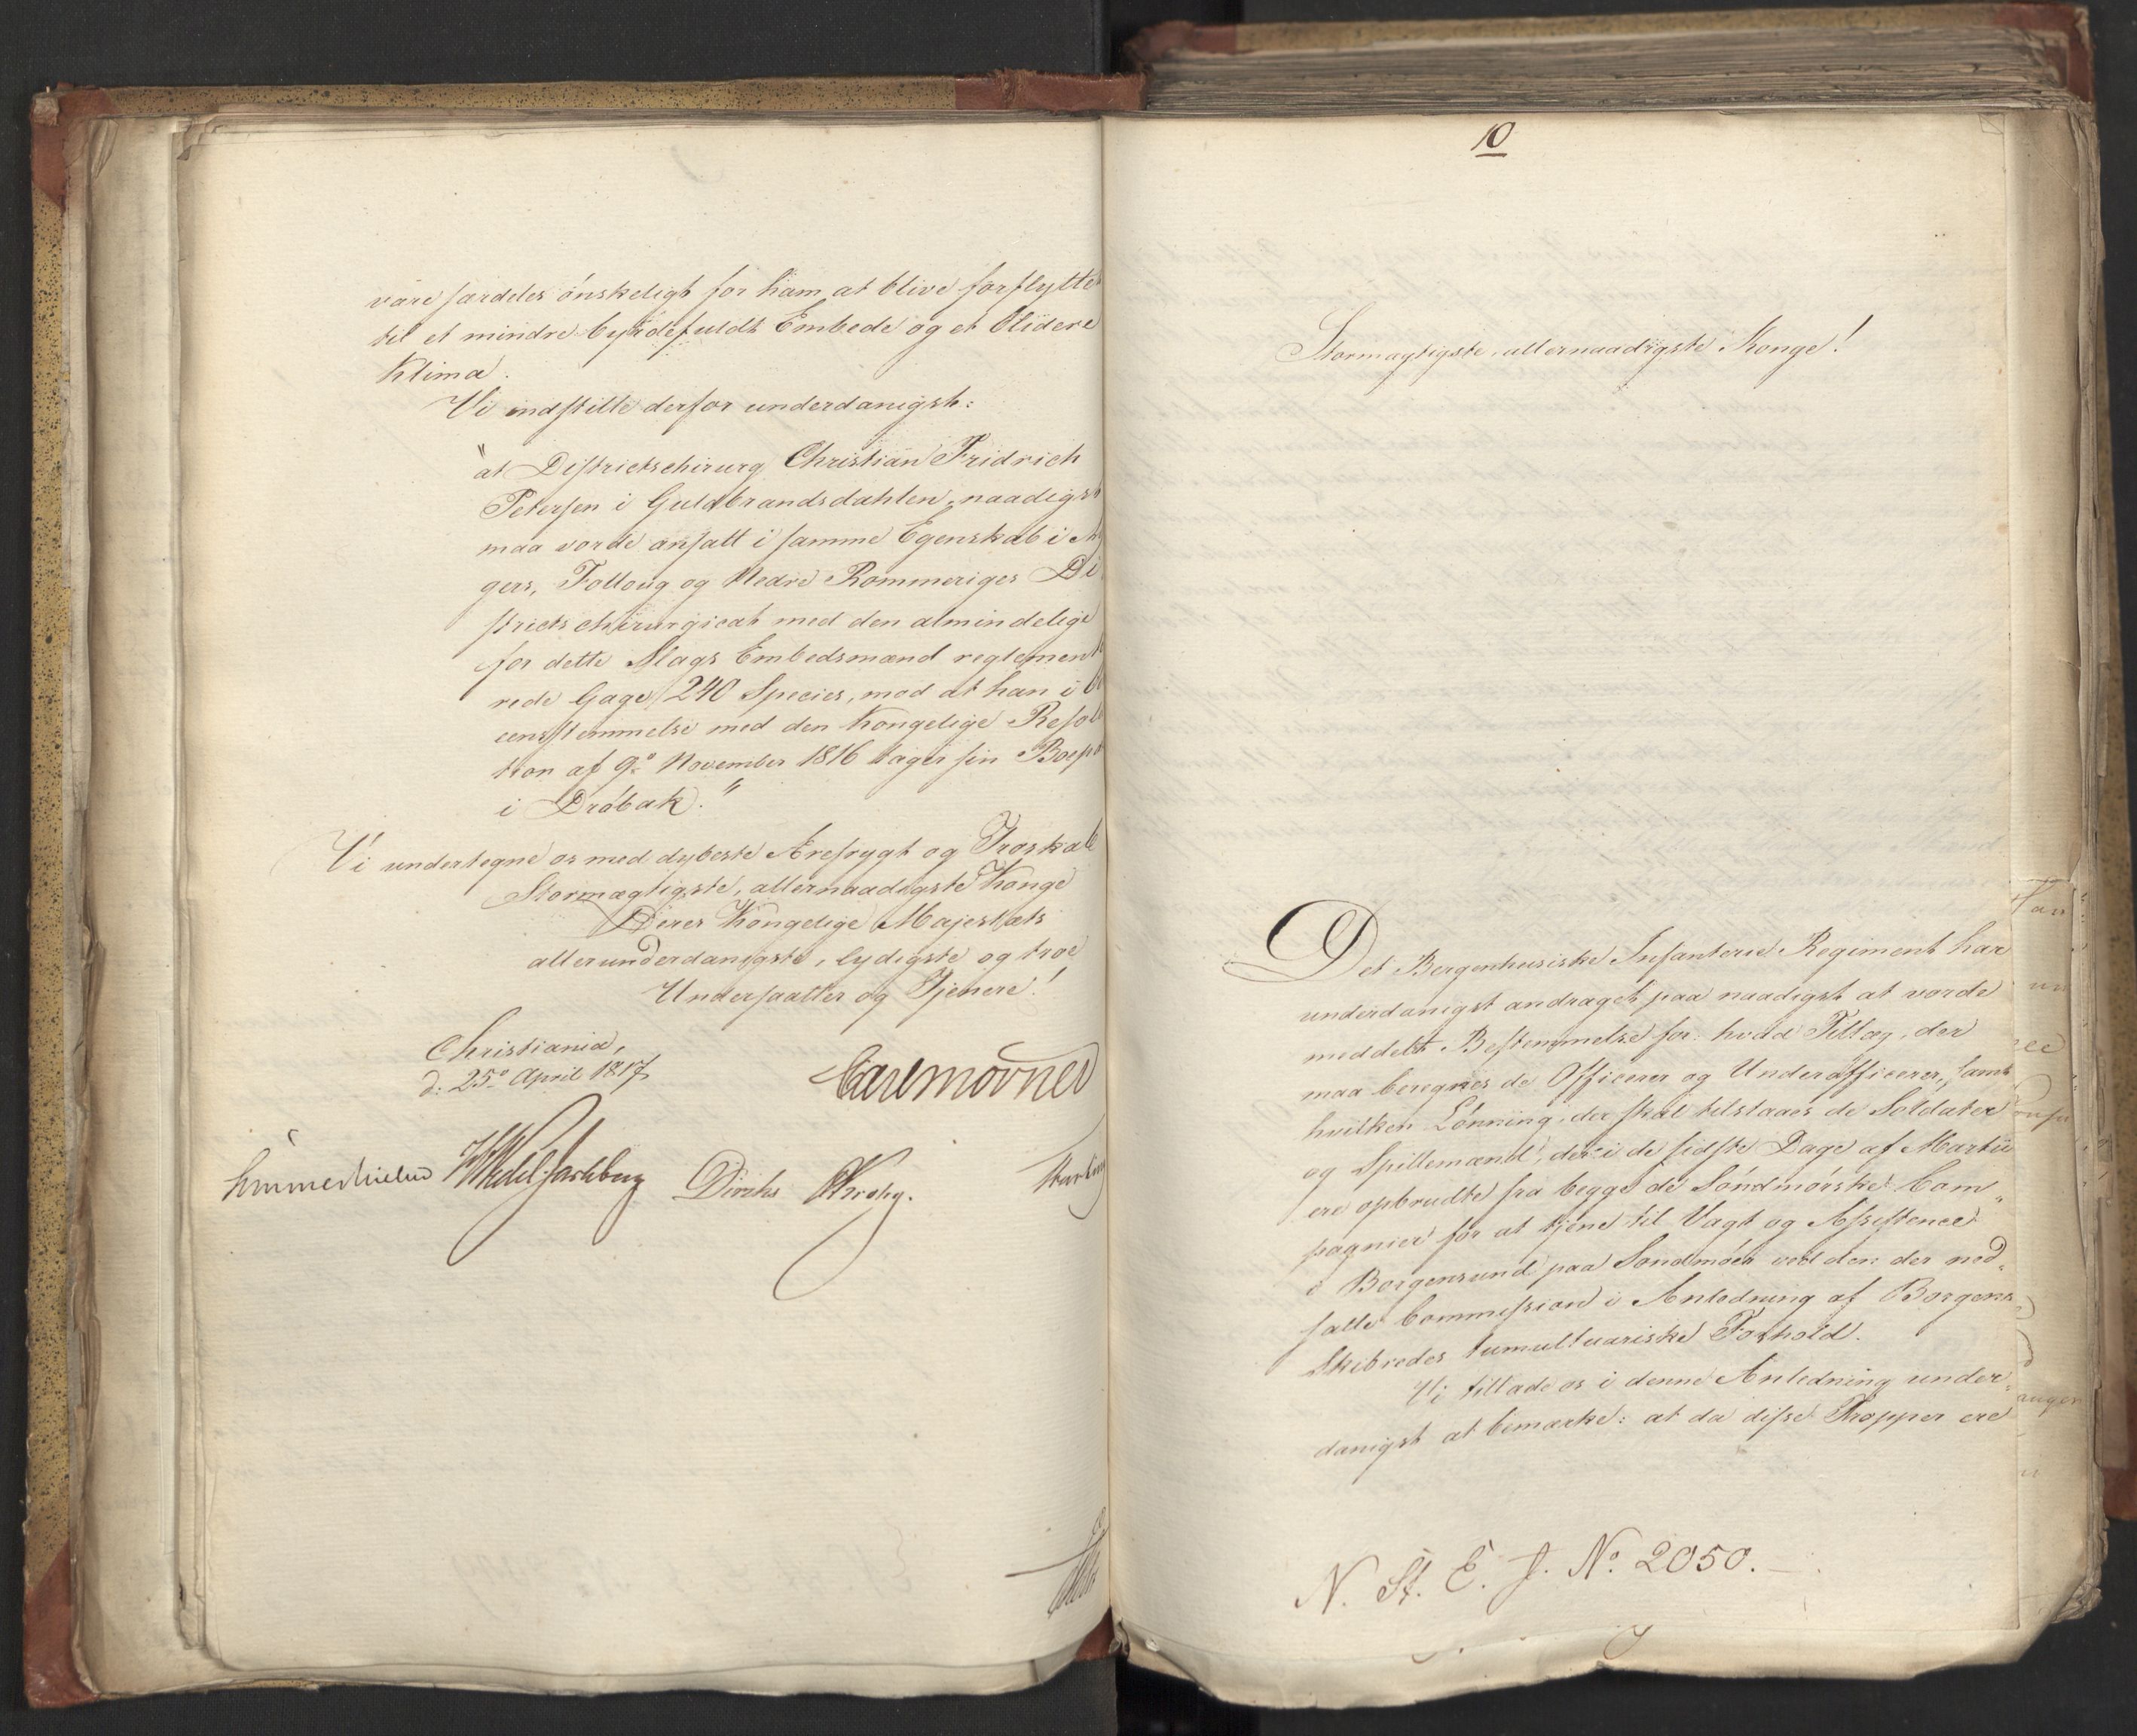 være særdeles ønskeligt for ham at blive forflyttet
til et mindre byrdefuldt Embede og et blidere
Klima.
Vi indstille derfor underdanigst:
"at Districtschirurg Christian Fridrich
Petersen i Guldbrandsdahlen, naadigst
maa vorde ansatt i samme Egenskab i A
gers, Folloug og Nedre Rommeriges Di
stricts chirurgicat med den almindelige
for dette Slags Embedsmænd reglemente
rede Gage 240 Species, mod at han i O
eensstemmelse med den Kongelige Resolu
tion af 9º November 1816 tager sin Boepæ
i Drøbak."
Vi undertegne os med dybeste Ærefrygt og Troskab
Stormægtigste, allernaadigste Konge
Deres Kongelige Majestæts
allerunderdanigste, lydigste og troe
Undersaatter og Tjenere!
Christiania,
d: 25º April 1817
Carl Mörner
Hummerhielm WedelJarlsberg Diriks Krohg.
10
Stormægtigste, allernaadigste Konge!
Det Bergenhusiske Infanterie Regiment har
underdanigst andraget paa naadigst at vorde
meddelt Bestemmelse for: hvad Tillæg, der
maa beregnes de Officerer og Underofficerer, samt
hvilken Lønning, der skal tilstaaes de Soldater
og Spillemænd, der i de sidste Dage af Martii
ere opbrudte fra begge de Søndmørske Com„
pagnier for at tjene til Vagt og Assistence
i Borgensund paa Søndmøer ved den der ned„
satte Commission i Anledning af Borgens
Skibredes tumultuariske Forhold.
Vi tillade os i denne Anledning under„
danigst at bemærke: at da disse Tropper ere
N. St. E. J. Nº 2050.